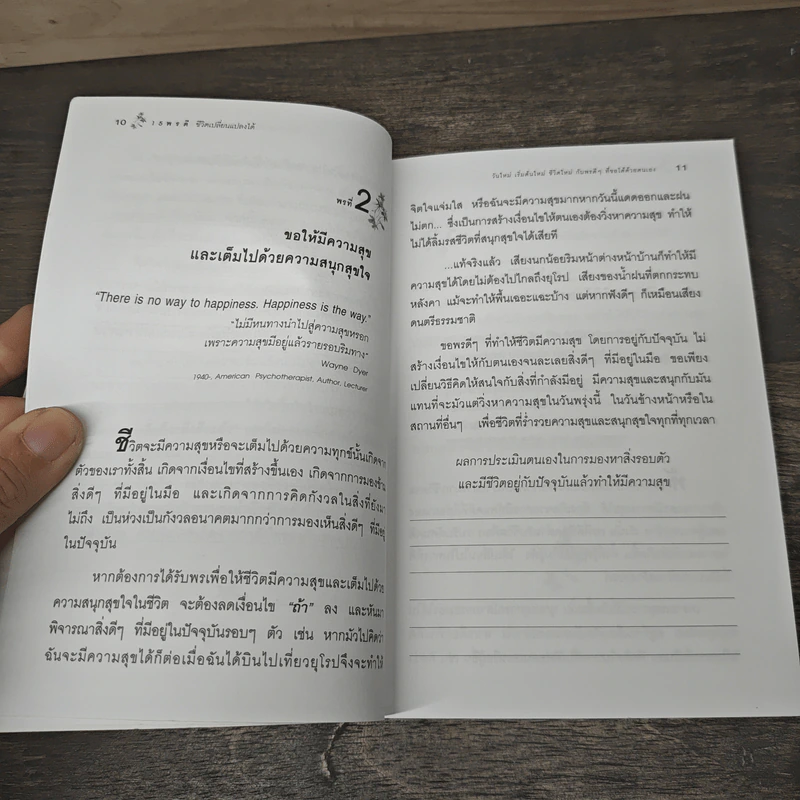 10 ว า ร พ ร ดี ชีวิตเปลี่ยนแปลงได้
พรที่ 2
ขอให้มีความสุข
และเต็มไปด้วยความสนุกสุขใจ
"There is no way to happiness. Happiness is the way."
"ไม่มีหนทางนำไปสู่ความสุขหรอก
เพราะความสุขมีอยู่แล้วรายรอบริมทาง"
Wayne Dyer
1940-, American Psychotherapist, Author, Lecturer
ชีวิตจะมีความสุขหรือจะเต็มไปด้วยความทุกข์นั้นเกิดจาก
ตัวของเราทั้งสิ้น เกิดจากเงื่อนไขที่สร้างขึ้นเอง เกิดจากการมองข้าม
สิ่งดีๆ ที่มีอยู่ในมือ และเกิดจากการคิดกังวลในสิ่งที่ยังมา
ไม่ถึง เป็นห่วงเป็นกังวลอนาคตมากกว่าการมองเห็นสิ่งดีๆ ที่มีอยู่
ในปัจจุบัน
หากต้องการได้รับพรเพื่อให้ชีวิตมีความสุขและเต็มไปด้วย
ความสนุกสุขใจในชีวิต จะต้องลดเงื่อนไข "ถ้า" ลง และหันมา
พิจารณาสิ่งดีๆ ที่มีอยู่ในปัจจุบันรอบๆ ตัว เช่น หากมัวไปคิดว่า
ฉันจะมีความสุขได้ก็ต่อเมื่อฉันได้บินไปเที่ยวยุโรปจึงจะทำให้
วันใหม่ เริ่มต้นใหม่ ชีวิตใหม่ กับพรดีๆ ที่ขอได้ด้วยตนเอง 11
จิตใจแจ่มใส หรือฉันจะมีความสุขมากหากวันนี้แดดออกและฝน
ไม่ตก... ซึ่งเป็นการสร้างเงื่อนไขให้ตนเองต้องวิ่งหาความสุข ทำให้
ไม่ได้ลิ้มรสชีวิตที่สนุกสุขใจได้เสียที
...แท้จริงแล้ว เสียงนกน้อยริมหน้าต่างหน้าบ้านก็ทำให้มี
ความสุขได้โดยไม่ต้องไปไกลถึงยุโรป เสียงของน้ำฝนที่ตกกระทบ
หลังคา แม้จะทำให้พื้นเฉอะแฉะบ้าง แต่หากฟังดีๆ ก็เหมือนเสียง
ดนตรีธรรมชาติ
ขอพรดีๆ ที่ทำให้ชีวิตมีความสุข โดยการอยู่กับปัจจุบัน ไม่
สร้างเงื่อนไขให้กับตนเองจนละเลยสิ่งดีๆ ที่มีอยู่ในมือ ขอเพียง
เปลี่ยนวิธีคิดให้สนใจกับสิ่งที่กำลังมีอยู่ มีความสุขและสนุกกับมัน
แทนที่จะมัวแต่วิ่งหาความสุขในวันพรุ่งนี้ ในวันข้างหน้าหรือใน
สถานที่อื่นๆ เพื่อชีวิตที่ร่ำรวยความสุขและสนุกสุขใจทุกที่ทุกเวลา
ผลการประเมินตนเองในการมองหาสิ่งรอบตัว
และมีชีวิตอยู่กับปัจจุบันแล้วทำให้มีความสุข